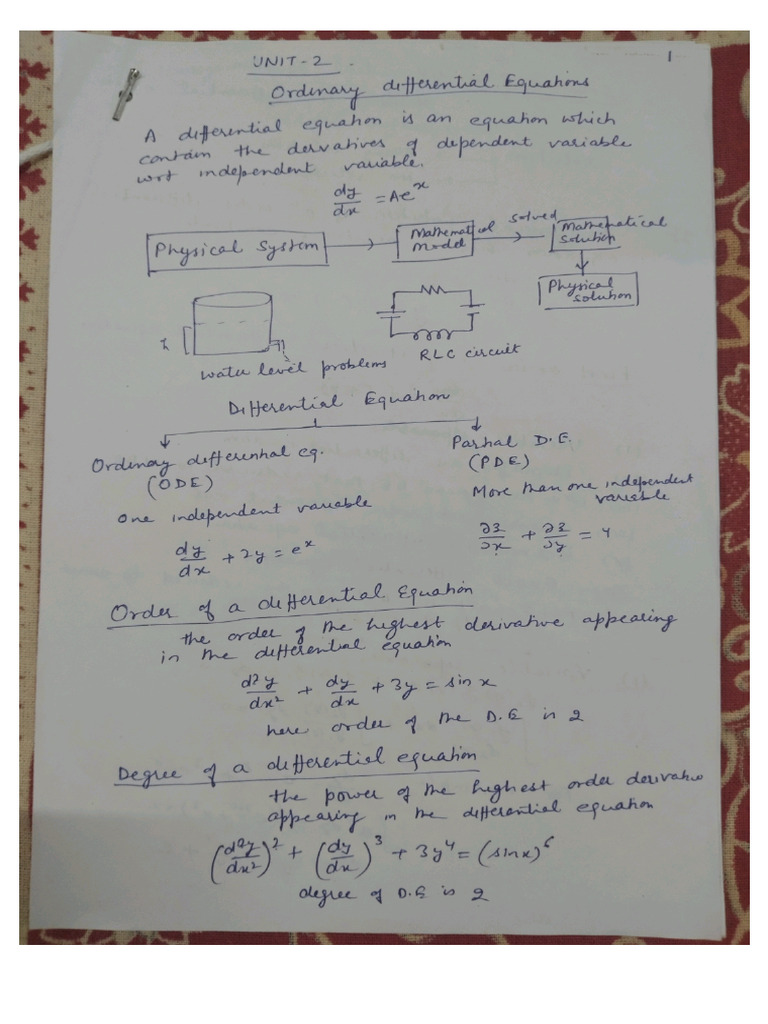 1
UNIT-2.
Ordinary differential Equations
A differential equation is an equation which
contain the derivatives of dependent variable
wrt independent variable.
dy/dx = Ae^x
Physical System → Mathematical model → solved Mathematical solution
Physical solution
water level problems
RLC circuit
Differential Equation
Ordinary differential eq.
(ODE)
One independent variable
dy/dx + 2y = e^x
Partial D.E.
(PDE)
More than one independent
variable
∂z/∂x + ∂z/∂y = 4
Order of a differential Equation
the order of the highest derivative appearing
in the differential equation
d²y/dx² + dy/dx + 3y = sin x
here order of the D.E is 2
Degree of a differential equation
the power of the highest order derivative
appearing in the differential equation
(d²y/dx²)² + (dy/dx)³ + 3y⁴ = (sinx)⁶
degree of D.E is 2